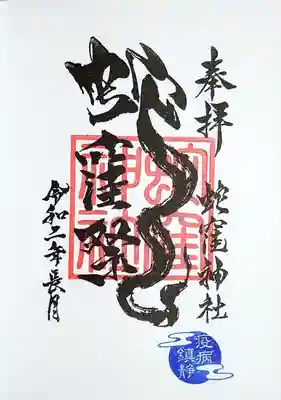 奉拝　蛇窪神社
蛇窪祭
蛇窪
神社
令和二年長月
疫病
鎮静